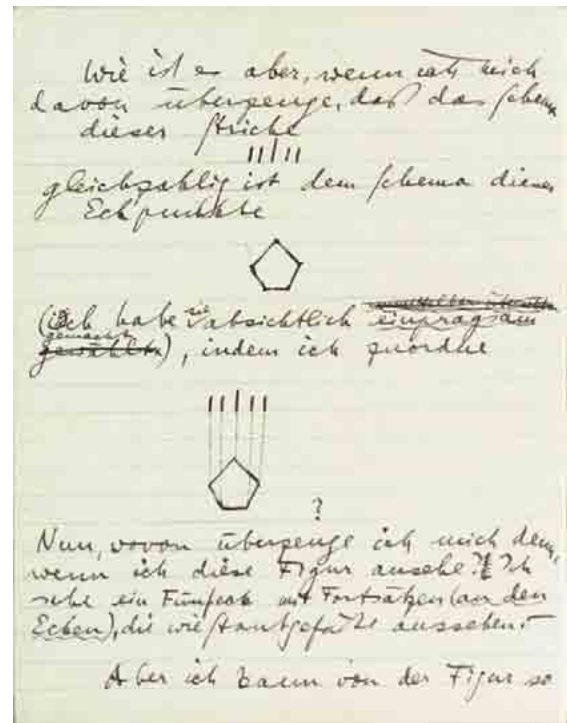 Wie ist es aber, wenn ich mich
davon überzeuge, daß das Schema
dieser Striche
gleichzahlig ist dem Schema dieser
Eckpunkte
(ich habe sie absichtlich einprägsam
gemacht gewählt), indem ich zuordne
?
Nun, wovon überzeuge ich mich denn,
wenn ich diese Figur ansehe? Ich
sehe ein Fünfeck mit Fortsätzen (an den
Ecken), die wie aussehen.
Aber ich kann von der Figur so